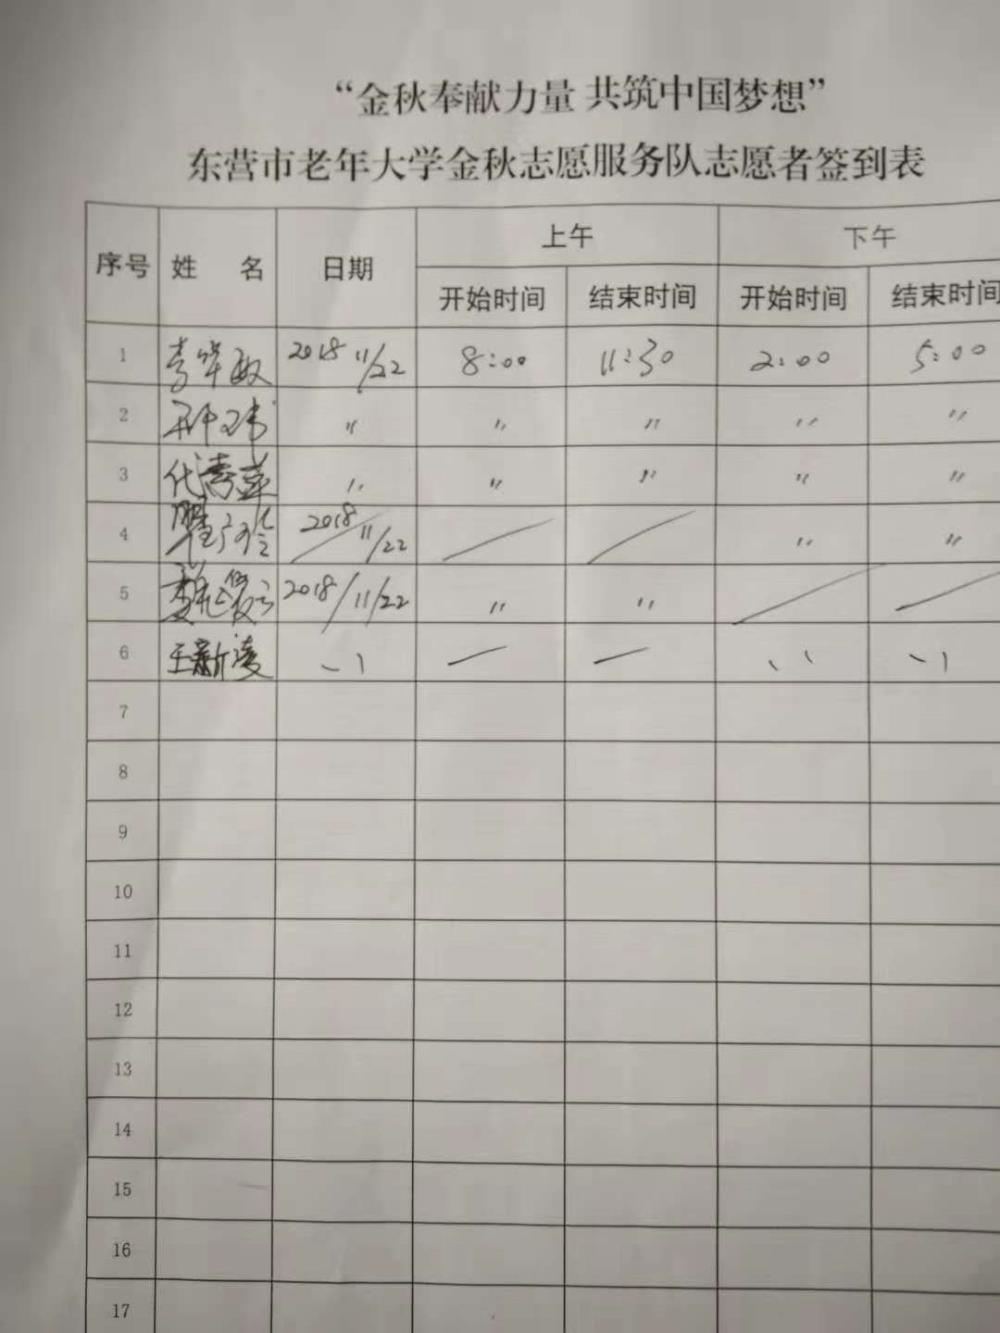 “金秋奉献力量 共筑中国梦想”
东营市老年大学金秋志愿服务队志愿者签到表
序号 姓 名 日期 上午 下午
开始时间 结束时间 开始时间 结束时间
1 2018 11/22 8:00 11:30 2:00 5:00
2 〃 〃 〃 〃 〃
3 代秀萍 〃 〃 〃 〃 〃
4 2018/11/22 / / 〃 〃
5 2018/11/22 〃 〃 / /
6 王新凌 〃 — — 〃 〃
7
8
9
10
11
12
13
14
15
16
17